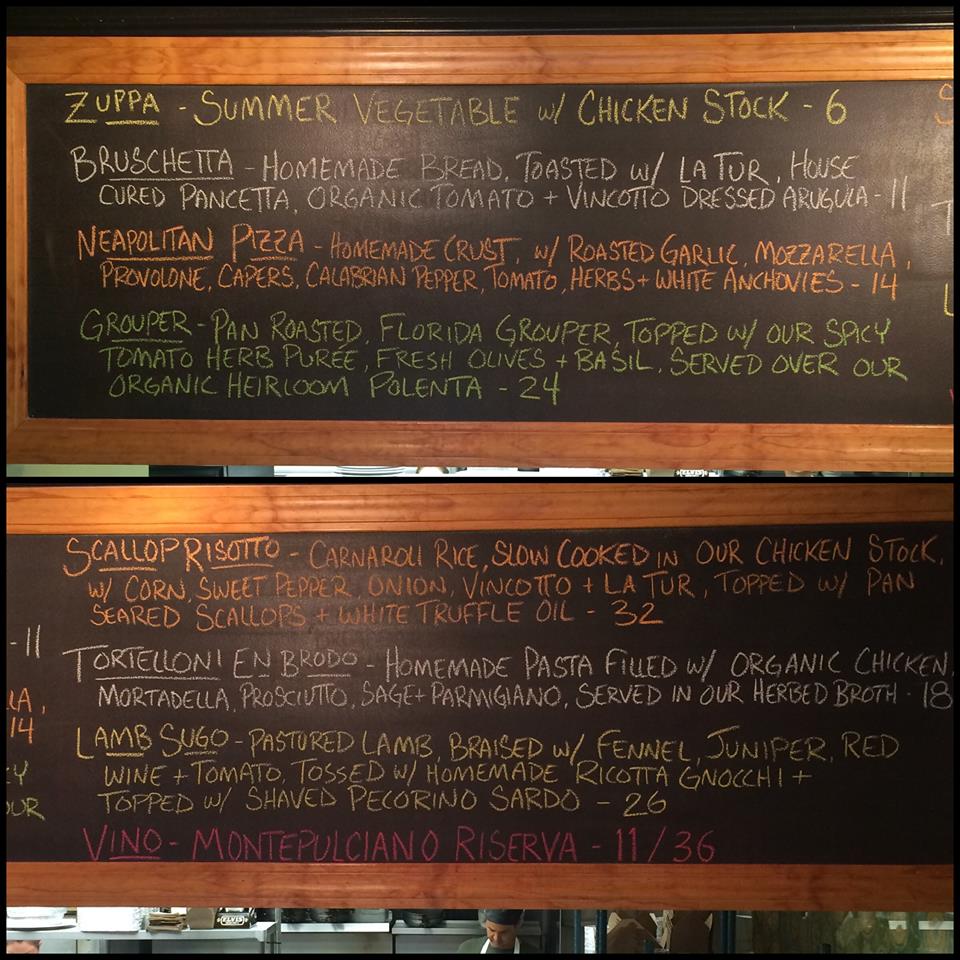 ZUPPA - SUMMER VEGETABLE w/ CHICKEN STOCK - 6
BRUSCHETTA - HOMEMADE BREAD, TOASTED w/ LA TUR, HOUSE
CURED PANCETTA, ORGANIC TOMATO + VINCOTTO DRESSED ARUGULA - 11
NEAPOLITAN PIZZA - HOMEMADE CRUST, w/ ROASTED GARLIC, MOZZARELLA,
PROVOLONE, CAPERS, CALABRIAN PEPPER, TOMATO, HERBS + WHITE ANCHOVIES - 14
GROUPER - PAN ROASTED, FLORIDA GROUPER, TOPPED w/ OUR SPICY
TOMATO HERB PURÉE, FRESH OLIVES + BASIL, SERVED OVER OUR
ORGANIC HEIRLOOM POLENTA - 24
SCALLOP RISOTTO - CARNAROLI RICE, SLOW COOKED IN OUR CHICKEN STOCK,
w/ CORN, SWEET PEPPER, ONION, VINCOTTO + LA TUR, TOPPED w/ PAN
SEARED SCALLOPS + WHITE TRUFFLE OIL - 32
- 11
TORTELLONI EN BRODO - HOMEMADE PASTA FILLED w/ ORGANIC CHICKEN,
MORTADELLA, PROSCIUTTO, SAGE + PARMIGIANO, SERVED IN OUR HERBED BROTH - 18
LA,
14
LAMB SUGO - PASTURED LAMB, BRAISED w/ FENNEL, JUNIPER, RED
WINE + TOMATO, TOSSED w/ HOMEMADE RICOTTA GNOCCHI +
TOPPED w/ SHAVED PECORINO SARDO - 26
Y
OUR
VINO - MONTEPULCIANO RISERVA - 11/36
ELVIS